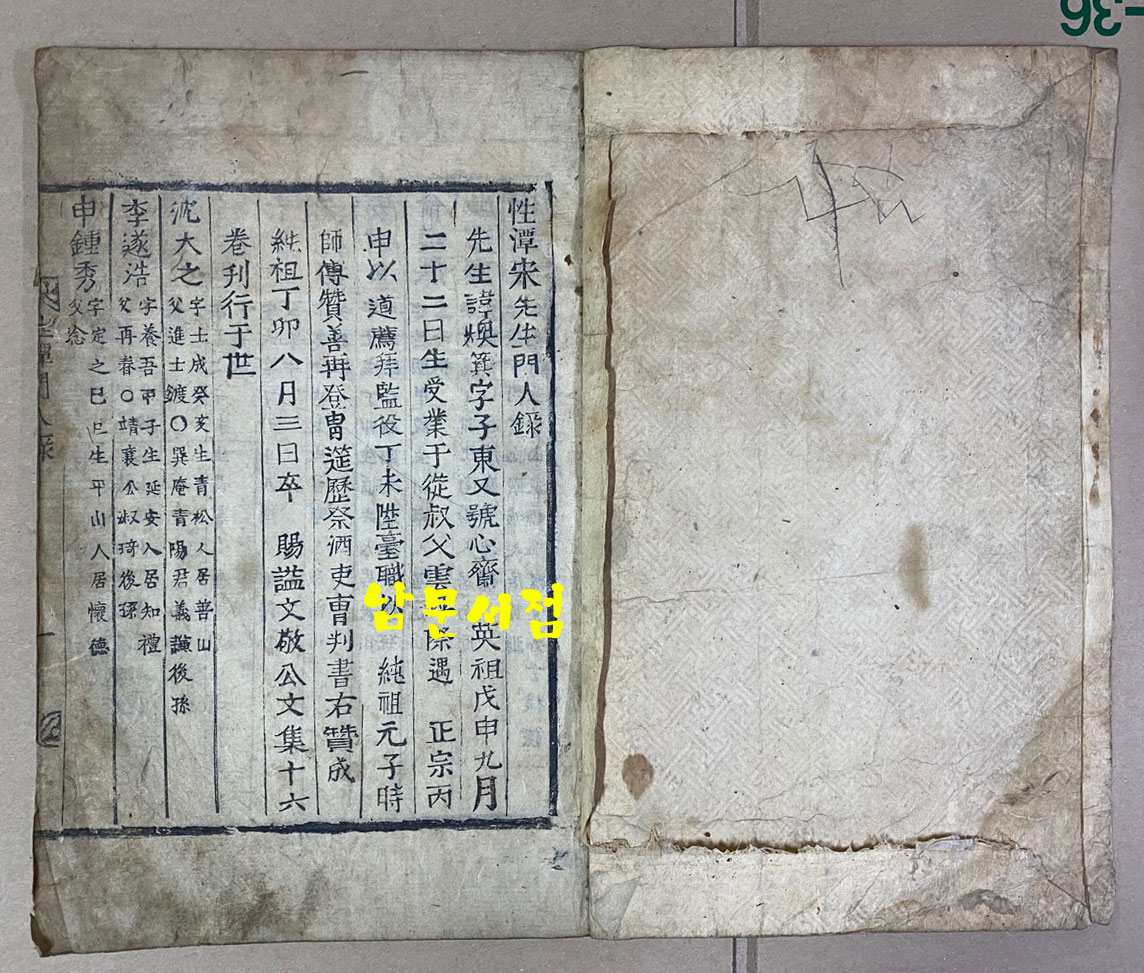 性潭宋先生門人錄
先生諱煥箕字子東又號心齋 英祖戊申九月
二十二日生受業于從叔父雲 際遇 正宗丙
申以道薦拜監役丁未陞臺職 純祖元子時
師傅贊善再登胄筵歷祭酒吏曹判書右贊成
純祖丁卯八月三日卒 賜諡文敬公文集十六
卷刊行于世
沈大之 字士成癸亥生青松人居普山
父進士鍍〇巽庵青陽君義謙後孫
李遂浩 字養吾甲子生延安人居知禮
父再春〇靖襄公淑琦後孫
申鍾秀 字定之己巳生平山人居懷德
父
性潭門人錄
一
남문서점
36